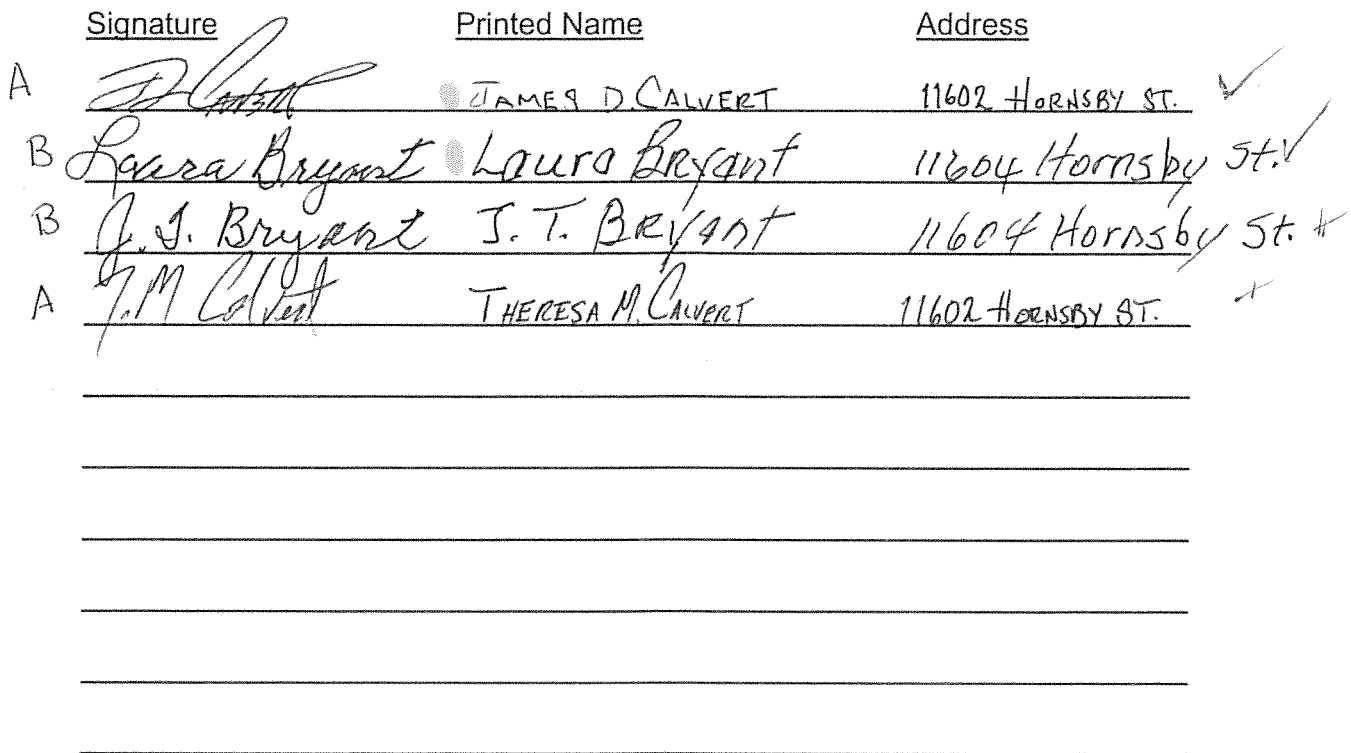 Signature Printed Name Address
A JAMES D. CALVERT 11602 HORNSBY ST. ✓
B Laura Bryant Laura Bryant 11604 Hornsby St. ✓
B J. T. Bryant J. T. Bryant 11604 Hornsby St. +
A T. M Calvert THERESA M. CALVERT 11602 HORNSBY ST. +